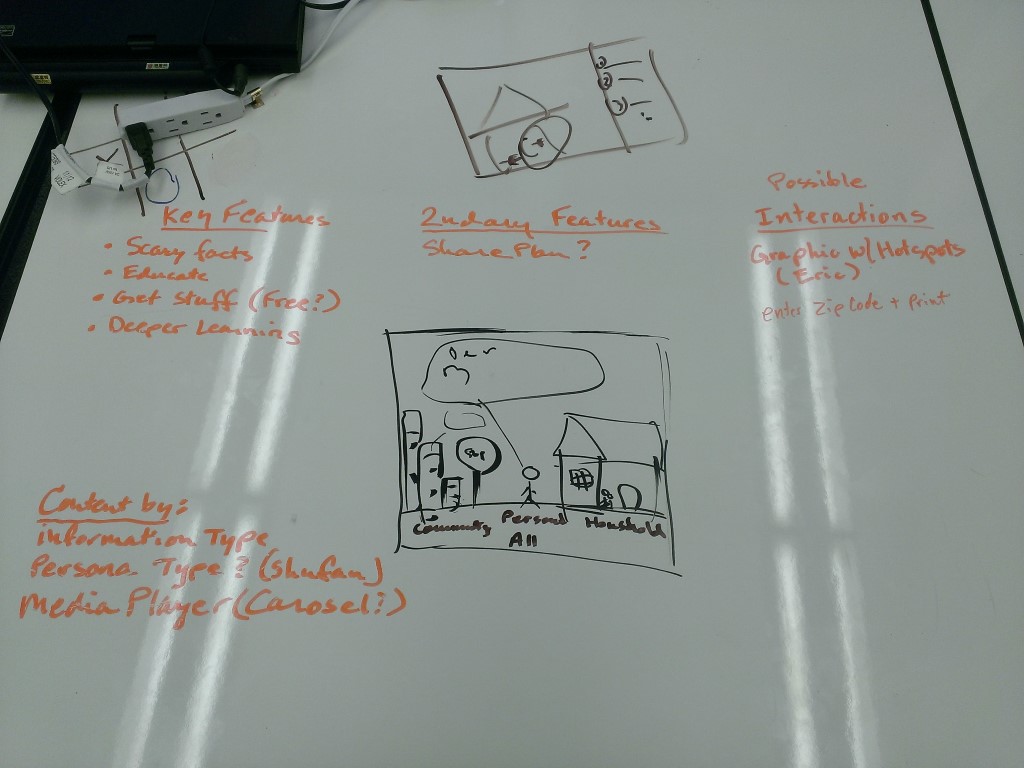 ①
②
③
Key Features
• Scary facts
• Educate
• Get Stuff (Free?)
• Deeper Learning
2ndary Features
Share Plan ?
Possible
Interactions
Graphic w/ Hotspots
(Eric)
enter Zip Code + Print
Community
Personal
Household
All
Content by:
Information Type
Persona Type ? (Shufan)
Media Player (Carosel?)